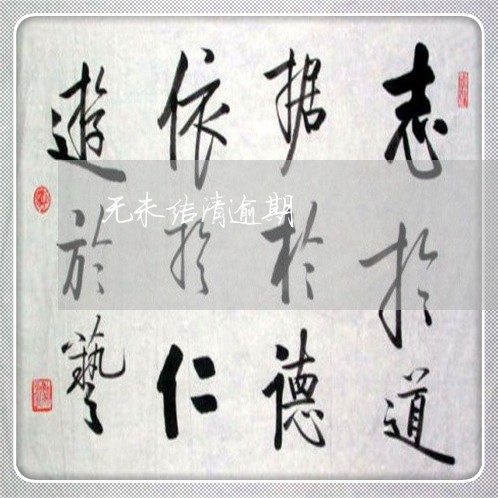 志於道
据於德
依於仁
遊於藝
无未结清逾期